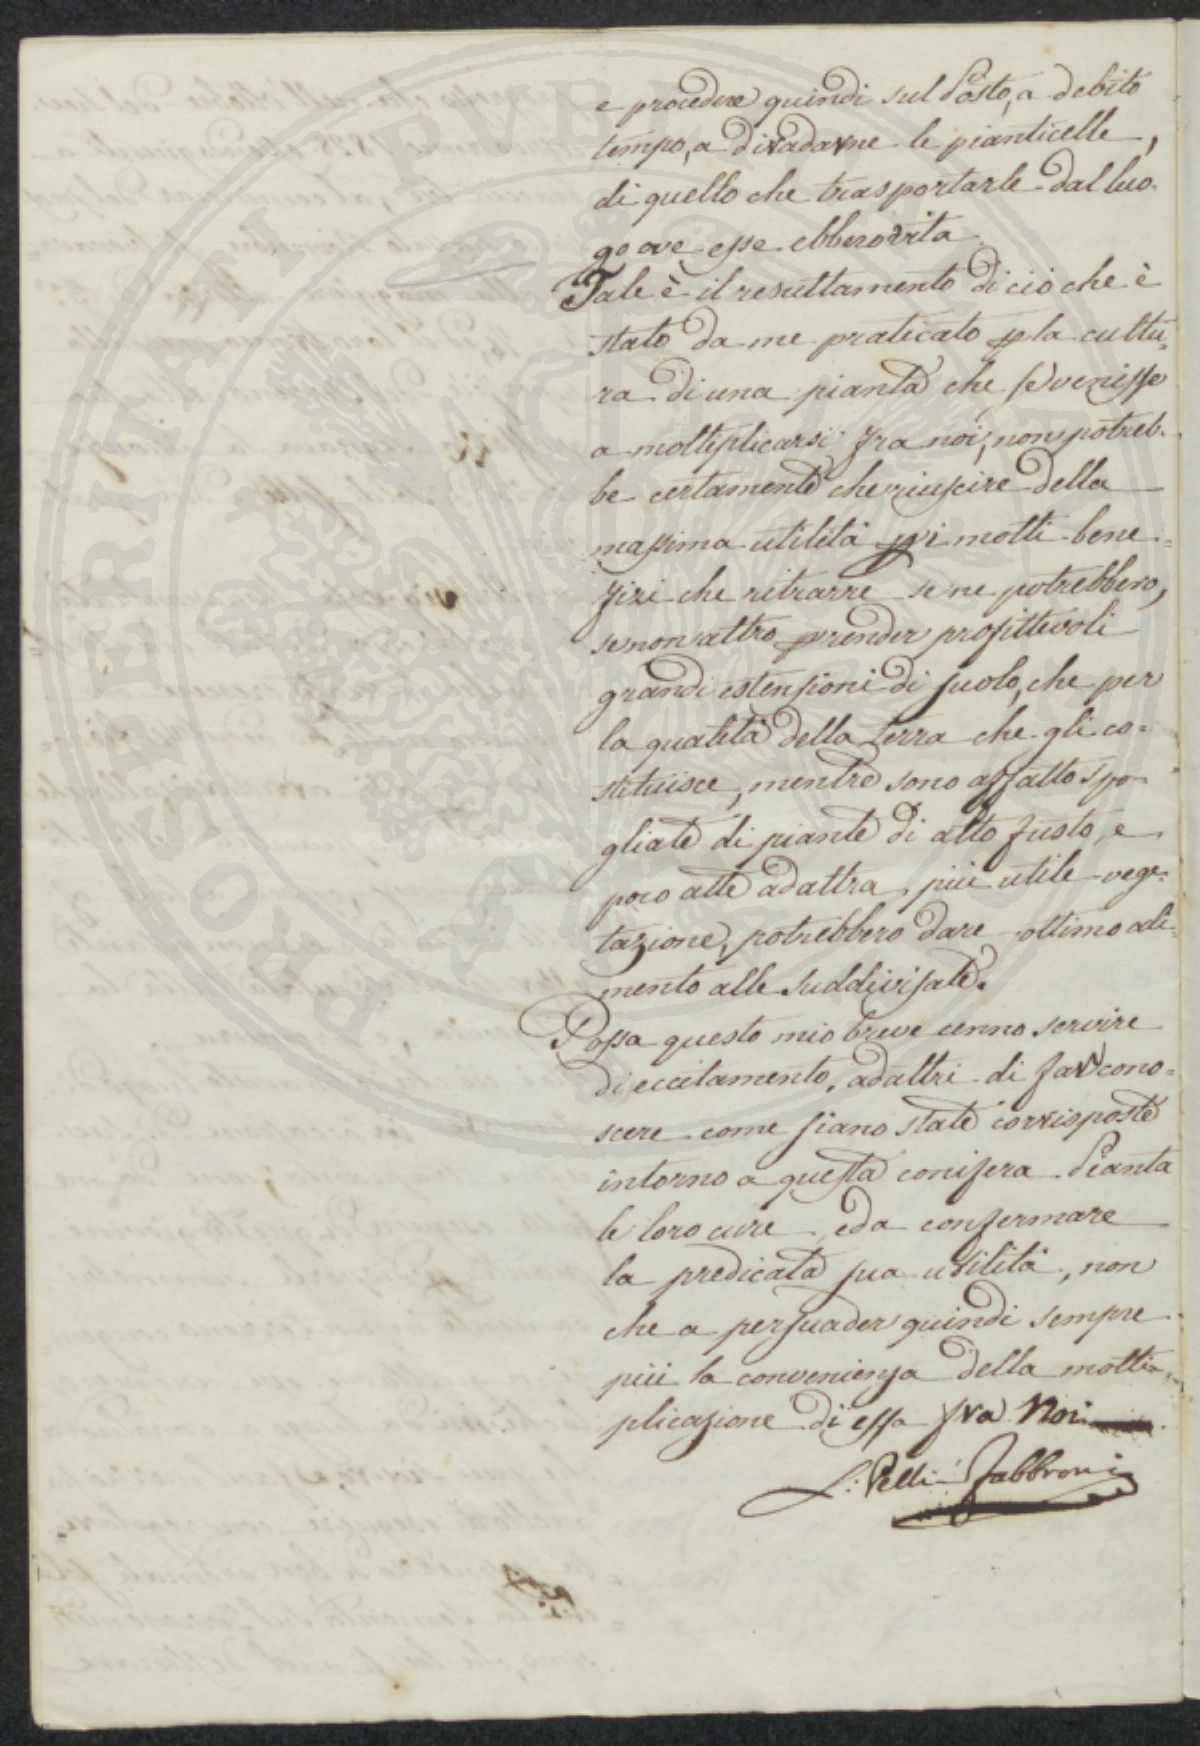 e procedere quindi sul Posto, a debito
tempo, a diradarne le pianticelle,
di quello che trasportarle dal luo-
go ove esse ebbero vita
Tale è il resultamento di ciò che è
stato da me praticato p la cultu=
ra di una pianta che se venisse
a moltiplicarsi fra noi, non potreb-
be certamente che riuscire della
massima utilità p i molti bene=
fizi che ritrarre se ne potrebbero,
se non altro p render profittevoli
grandi estensioni di suolo, che per
la qualità della terra che gli co-
stituisce, mentre sono affatto spo-
gliate di piante di alto fusto, e
poco atte ad altra più utile vege-
tazione, potrebbero dare ottimo ali=
mento alle suddivisate.
Possa questo mio breve cenno servire
di eccitamento, ad altri di far cono=
scere come siano state corrisposte
intorno a questa conifera Pianta
le loro cure, ed a confermare
la predicata sua utilità, non
che a persuader quindi sempre
più la convenienza della molti=
plicazione di essa fra Noi
L: Pelli Fabbroni
PROSPERITATI PVBLICAE